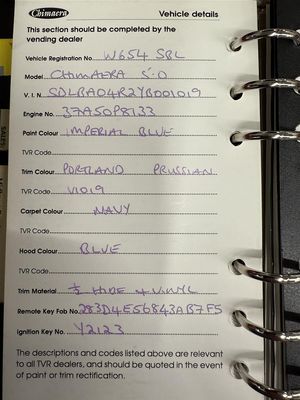 Chimaera Vehicle details
This section should be completed by the
vending dealer
Vehicle Registration No. W654 SBL
Model CHIMAERA 5.0
V. I. N. SDLBA04R2YB001019
Engine No. 37A50P8133
Paint Colour IMPERIAL BLUE
TVR Code
Trim Colour PORTLAND PRUSSIAN
TVR Code V1019
Carpet Colour NAVY
TVR Code
Hood Colour BLUE
TVR Code
Trim Material ½ HIDE + VINYL
Remote Key Fob No. 283D4E56843AB7F5
Ignition Key No. Y2123
The descriptions and codes listed above are relevant
to all TVR dealers, and should be quoted in the event
of paint or trim rectification.